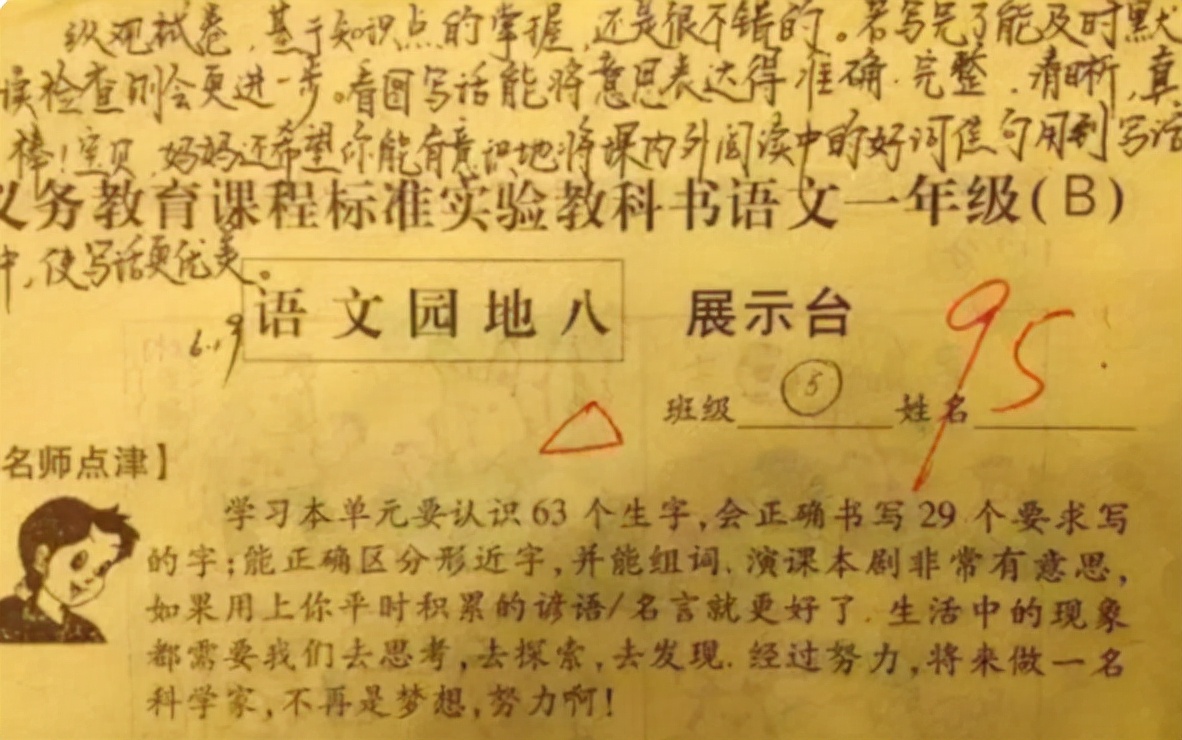 纵观试卷，基于知识点的掌握，还是很不错的。若写完了能及时默
读检查则会更进一步。看图写话能将意思表达得准确.完整.清晰，真
棒！宝贝，妈妈还希望你能有意识地将课内外阅读中的好词佳句用到写话
义务教育课程标准实验教科书语文一年级(B)
中，使写话更优美。
语文园地八 展示台
6.19
95
班级 5 姓名
名师点津】
学习本单元要认识63个生字,会正确书写29个要求写
的字;能正确区分形近字,并能组词.演课本剧非常有意思,
如果用上你平时积累的谚语/名言就更好了.生活中的现象
都需要我们去思考,去探索,去发现.经过努力,将来做一名
科学家,不再是梦想,努力啊!